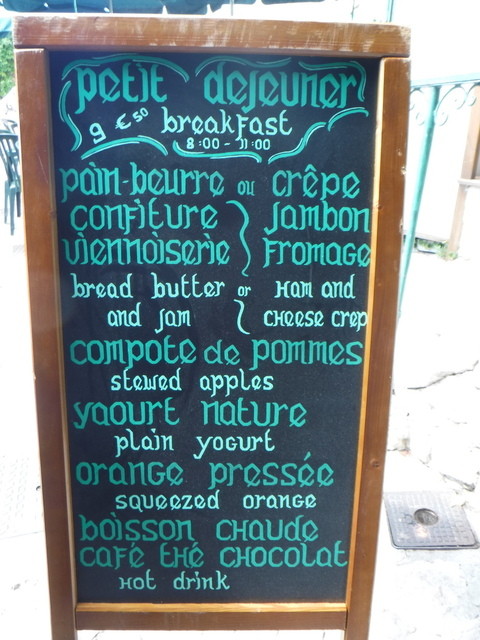 petit dejeuner
9 €50 breakfast
8:00 - 11:00
pain-beurre ou crêpe
confiture } jambon
viennoiserie } fromage
bread butter or Ham and
and jam } cheese crep
compote de pommes
stewed apples
yaourt nature
plain yogurt
orange pressée
squeezed orange
boisson chaude
café thé chocolat
Hot drink